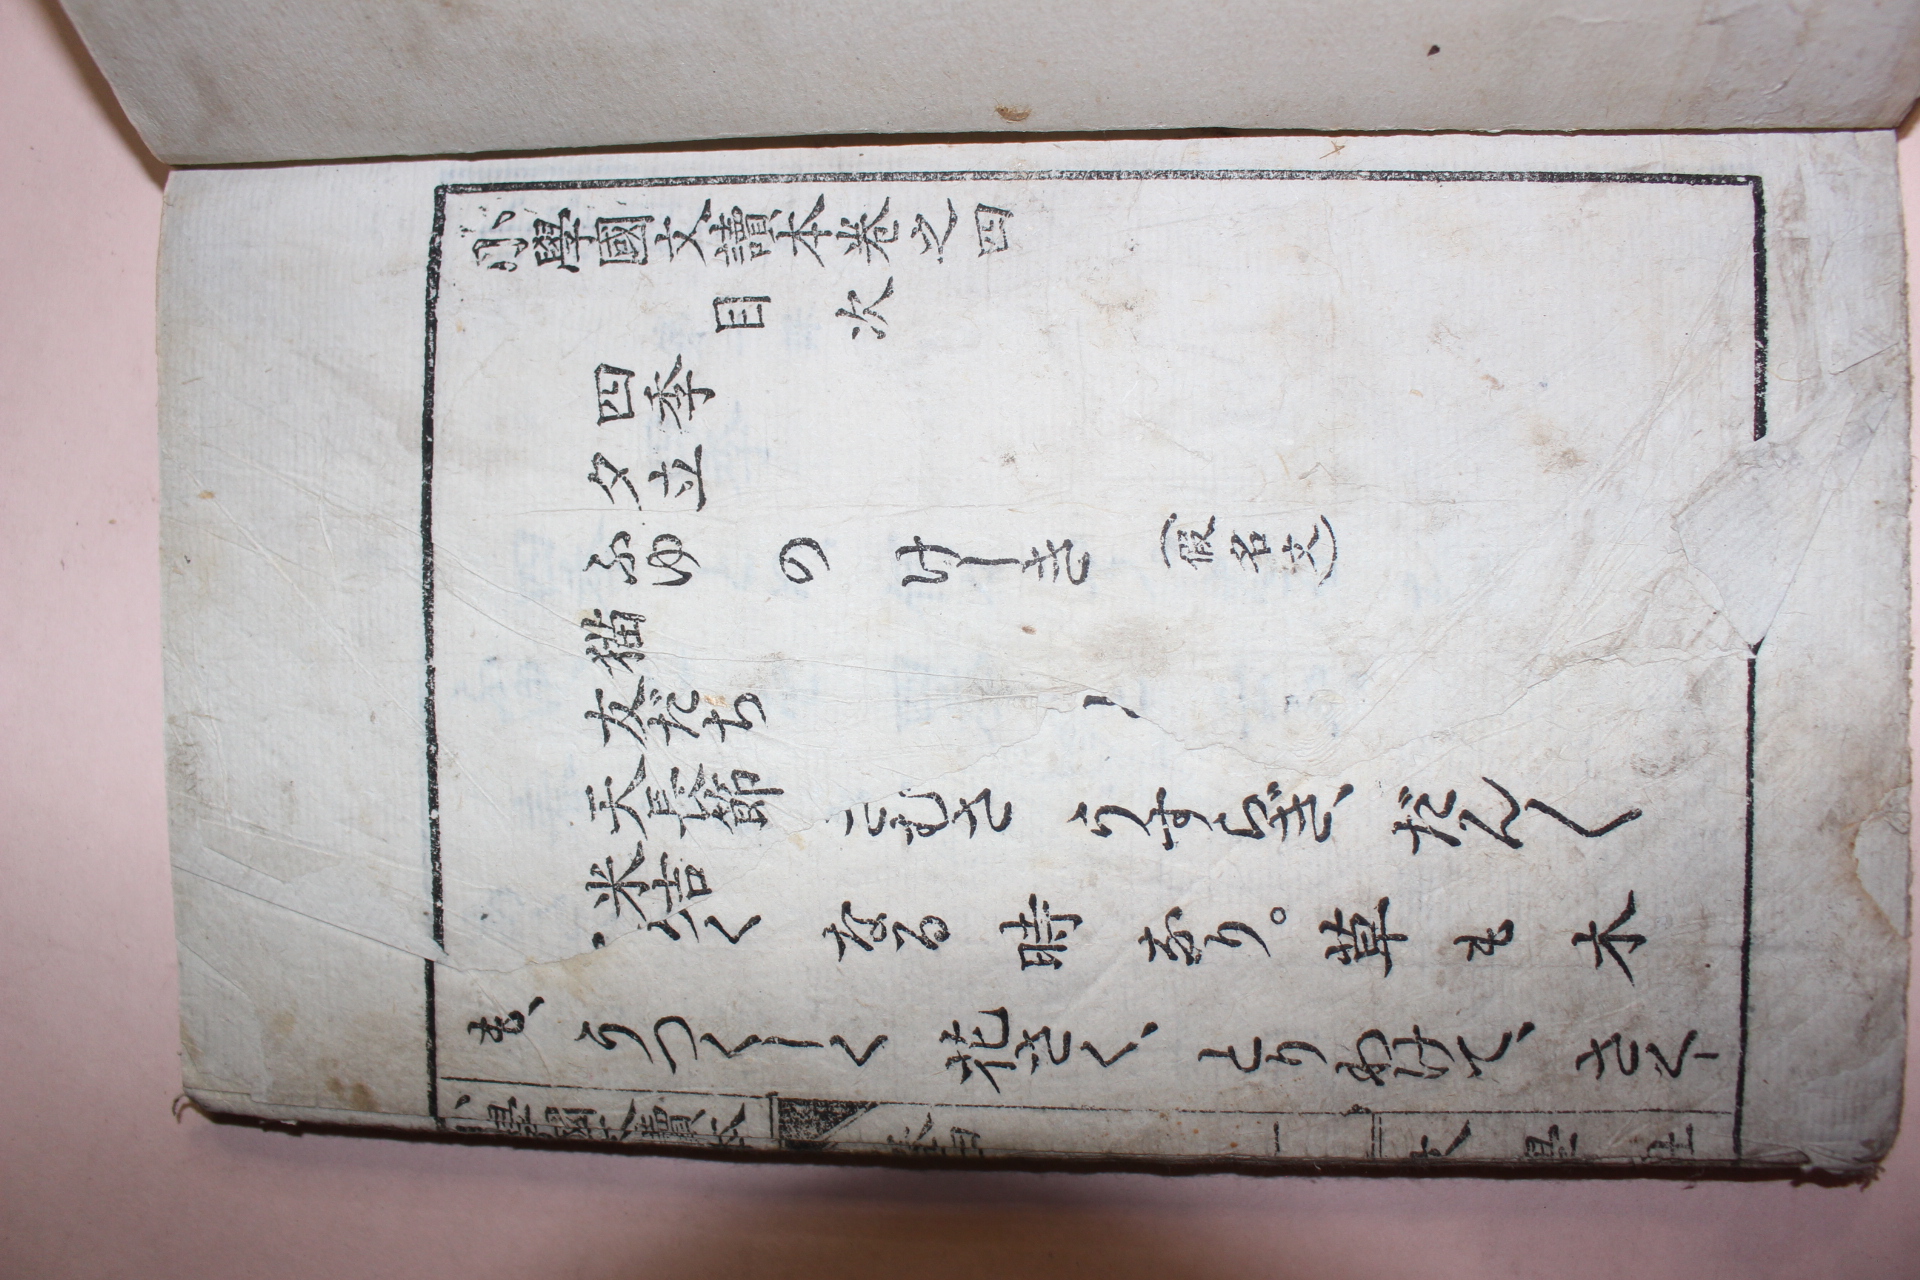 小學國文讀本卷之四
目次
四季
夕立
ふゆ の けしき (假名文)
猫
友だち
天長節
米吉
こむさ うすらぎ、だん〱
く なる 時 なり。草 も 木
も、うつくしく 花さく、とりわけて、さくー
小學國文讀本